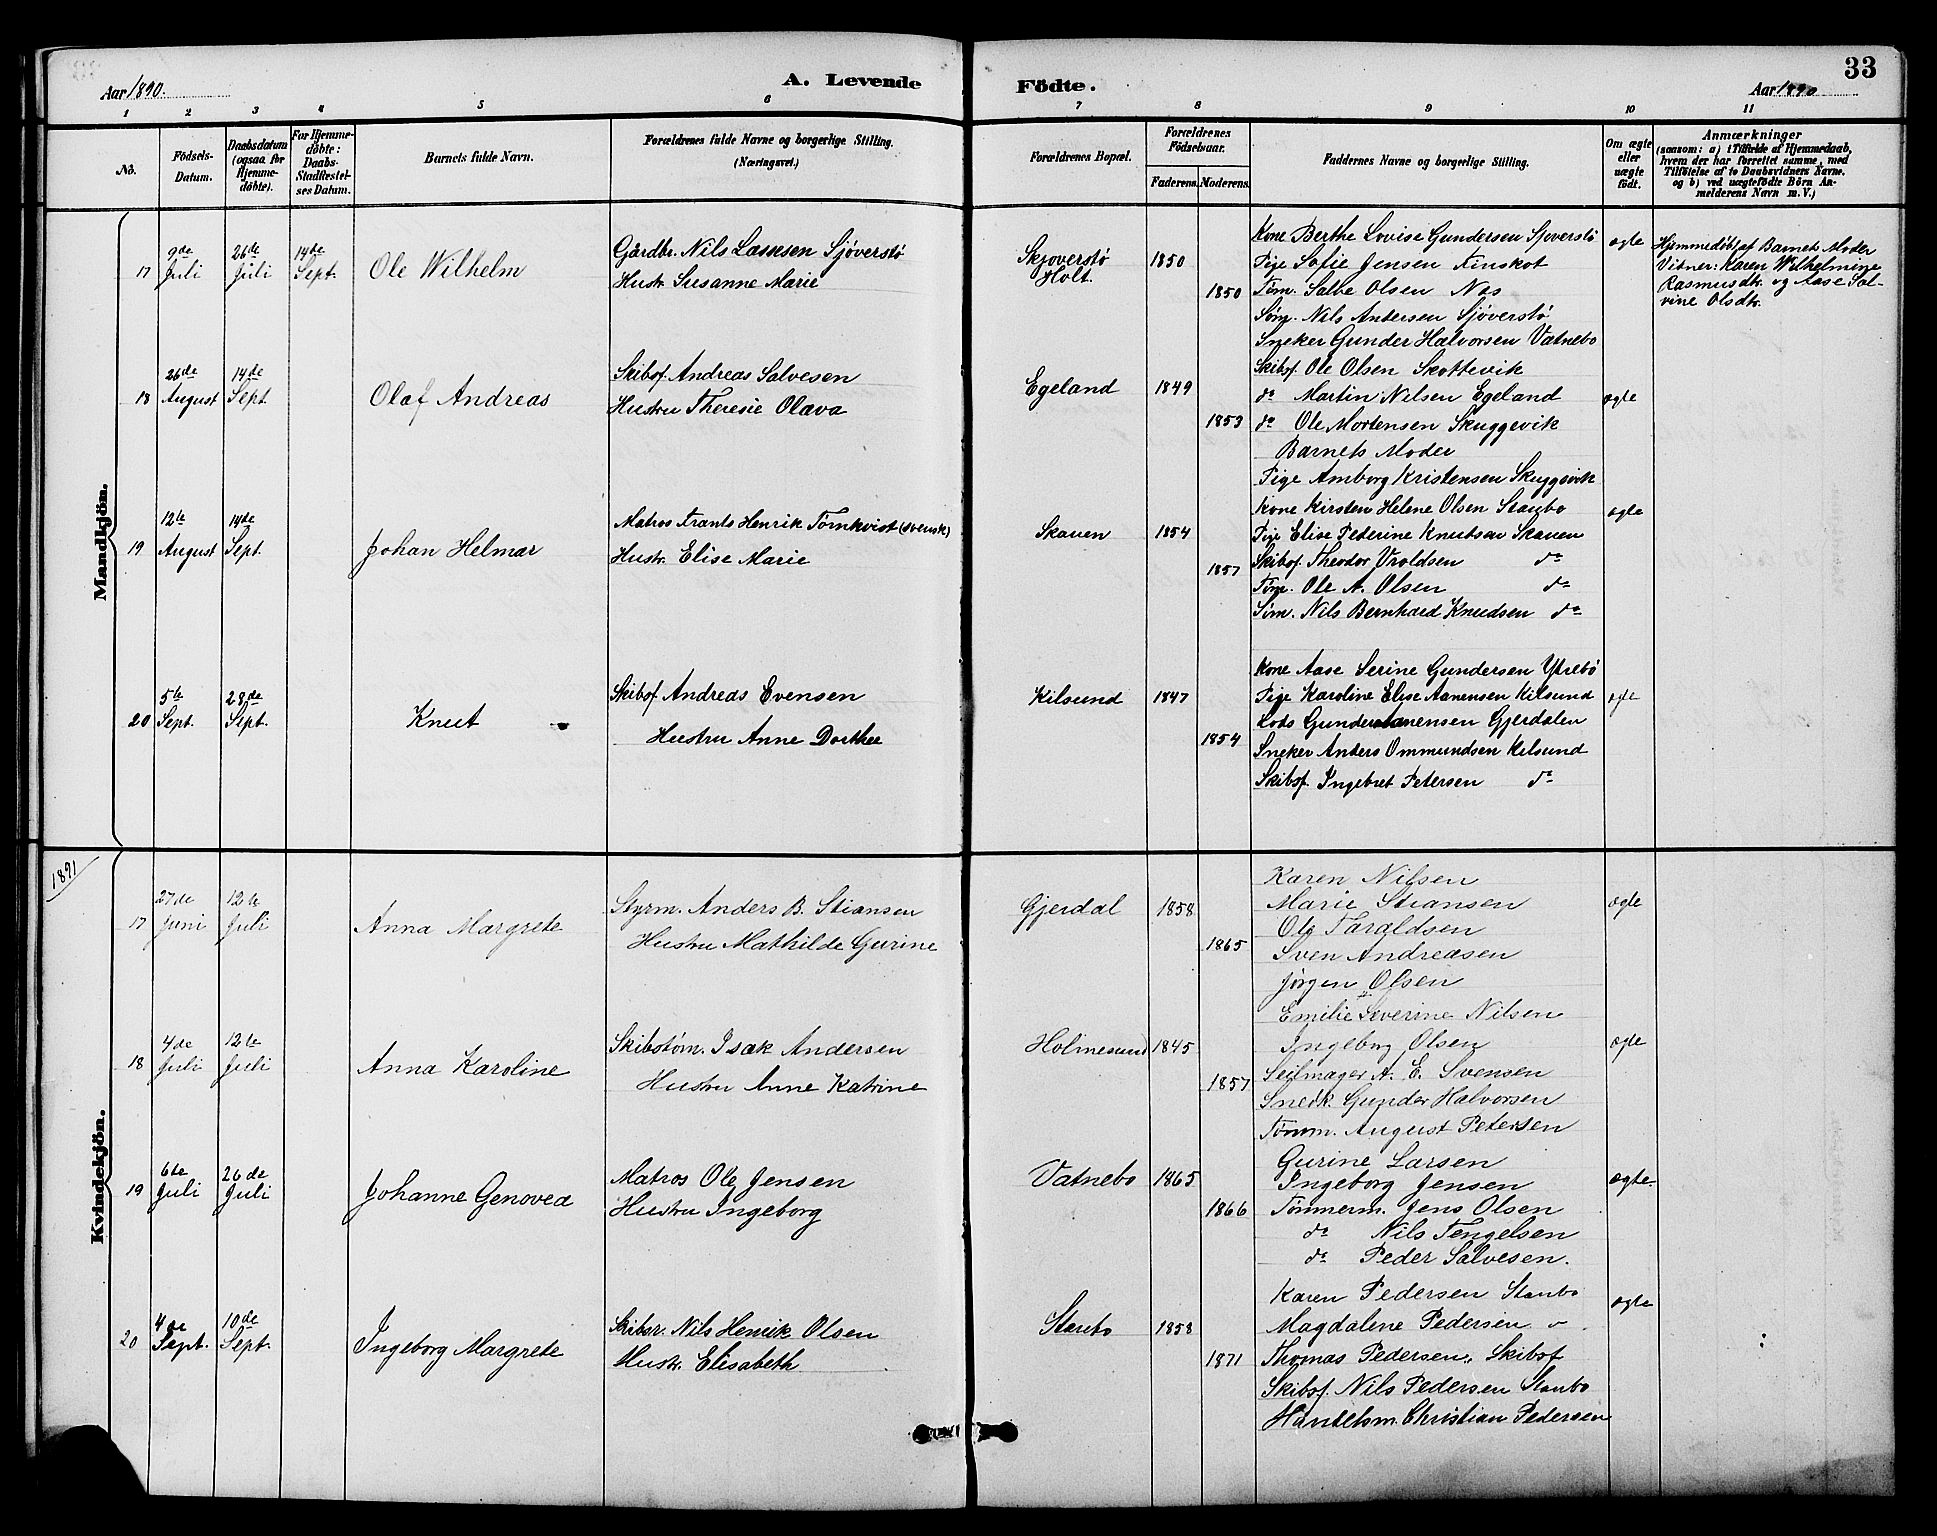 33
Aar 1890.
A. Levende Födte.
Aar 1890
1 2 3 4 5 6 7 8 9 10 11
No.
Födsels-Datum.
Daabsdatum (ogsaa for Hjemme-döbte).
For Hjemme-döbte: Daabs-Stadfæstel-ses Datum.
Barnets fulde Navn.
Forældrenes fulde Navne og borgerlige Stilling. (Næringsvei.)
Forældrenes Bopæl.
Forældrenes Födselsaar.
Faderens. Moderens.
Faddernes Navne og borgerlige Stilling.
Om ægte eller uægte födt.
Anmærkninger
(saasom: a) i Tilfælde af Hjemmedaab, hvem der har forrettet samme, med Tilföielse af to Daabsvidners Navne. og b) ved uægtefödte Börn Anmelderens Navn m. V.)
Mandkjön.
17
9de Juli
26de Juli
14de Sept.
Ole Wilhelm
Gårdbr. Nils Lassesen Sjøverstø
Hustr. Susanne Marie
Skjoverstø
Holt.
1850
1850
Kone Berthe Lovise Gundersen Sjoverstø
Pige Sofie Jensen Finskot
Tøm. Salve Olsen Nes
Søm. Nils Andersen Sjöverstö
Sneker Gunder Halvorsen Vatnebo
ægte
Hjemmedøbt af Barnets Moder
Vidner: Karen Wilhelmine
Rasmusdtr. og Aase Sal-
vine Olsdtr.
18
26de August
14de Sept.
Olaf Andreas
Skibsf. Andreas Salvesen
Hustru Theresie Olava
Egeland
1849
1853
Skibsf. Ole Olsen Skottevik
do Martin Nilsen Egeland
do Ole Mortensen Skuggevik
Barnets Moder
Pige Amborg Kristensen Skuggevik
ægte
19
12te August
14de Sept.
Johan Helmar
Matros Frants Henrik Törnkvist (svensk)
Hustr. Elise Marie
Skaven
1854
1857
Kone Kirsten Helene Olsen Staubo
Pige Elise Pederine Knutsen Skaven
Skibsf. Theodor Vroldsen do
Tøm. Ole A. Olsen do
Søm. Nils Bernhard Knudsen do
ægte
20
5te Sept.
28de Sept.
Knut
Skibsf. Andreas Evensen
Hustru Anne Dorthee
Kilsund
1847
1854
Kone Aase Serine Gundersen Ytrebö
Pige Karoline Elise Aanensen Kilsund
Lods Gunder Aanensen Gjerdalen
Sneker Anders Ommundsen Kilsund
Skibsf. Ingebret Petersen do
ægte
1891
Kvindekjön.
17
27de Juni
12te Juli
Anna Margrete
Styrm. Anders B. Stiansen
Hustru Mathilde Gurine
Gjerdal
1858
1865
Karen Nilsen
Marie Stiansen
Ole Taraldsen
Sven Andreasen
Jørgen Olsen
ægte
18
4de Juli
12te Juli
Anna Karoline
Skibstøm. Isak Andersen
Hustru Anne Katrine
Holmesund
1845
1857
Emilie Severine Nilsen
Ingeborg Olsen
Seilmager A. E. Svensen
Snedk. Gunder Halvorsen
Tømm. August Petersen
ægte
19
6te Juli
26de Juli
Johanne Genovea
Matros Ole Jensen
Hustru Ingeborg
Vatnebo
1865
1866
Gurine Larsen
Ingeborg Jensen
Tömmerm. Jens Olsen
do Nils Tengelsen
do Peder Salvesen.
ægte
20
4de Sept.
10de Sept.
Ingeborg Margrete
Skibsr. Nils Henrik Olsen
Hustr. Elisabeth
Staubo
1858
1871
Karen Pedersen Staubo
Magdalene Pedersen
Thomas Pedersen, Skibsf
Skibsf. Nils Pedersen Staubo
Handelsm. Christian Pedersen
ægte